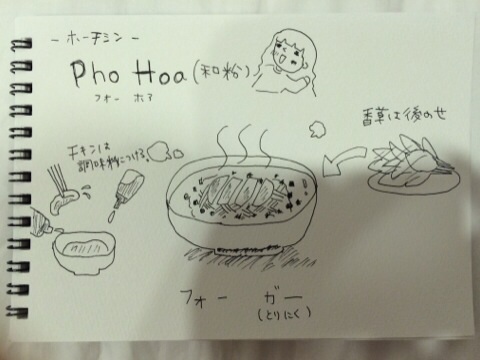 - ホーチミン -
Pho Hoa (和粉)
フォー ホア
香草は後のせ
チキンは
調味料につける。
フォー ガー
(とりにく)